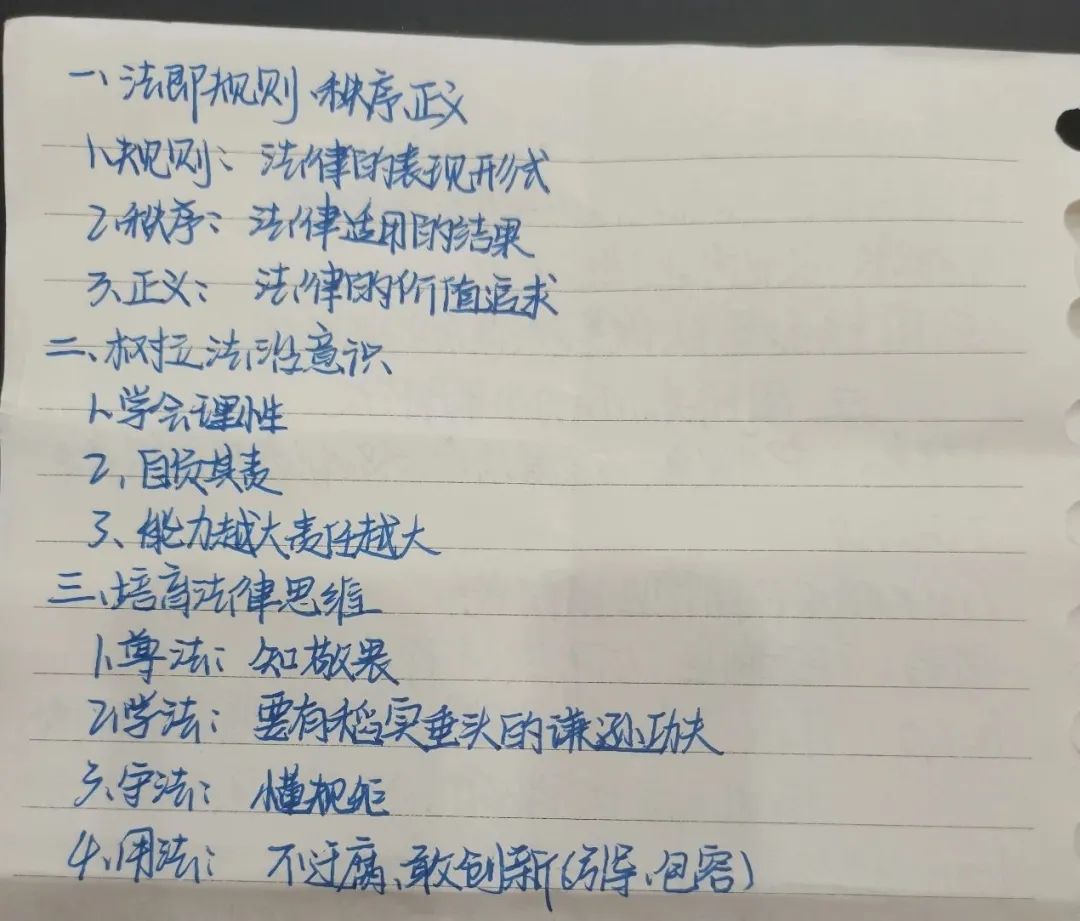 一、法即规则、秩序、正义
1、规则：法律的表现形式
2、秩序：法律适用的结果
3、正义：法律的价值追求
二、树立法治意识
1、学会理性
2、自负其责
3、能力越大责任越大
三、培育法律思维
1、尊法：知敬畏
2、学法：要有稻实垂头的谦逊功夫
3、守法：懂规矩
4、用法：不迂腐、敢创新(引导、包容)